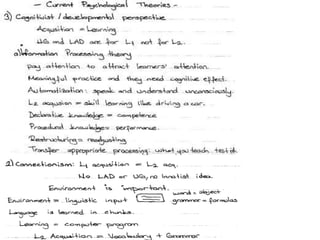 - Current Psychological Theories -
3) Cognitivist / developmental perspective
Acquisition = Learning
UG and LAD are for L1 not for L2.
a) Information Processing theory
pay attention to attract learners' attention.
Meaningful practice and they need cognitive effect.
Automatization: speak and understand unconsciously.
L2 acquision = skill learning like driving a car.
Declarative knowledge = competence
Procedural knowledge = performance
Restructuring = readjusting
Transfer appropriate processing: what you teach test it.
2) Connectionism: L1 acquisition = L2 acq.
No LAD or UG, no innatist idea.
Environment is important.
word = object
Environment = linguistic input
grammar = formulas
Language is learned in chunks.
Learning = computer program
L2 Acquisition = Vocabulary + Grammar